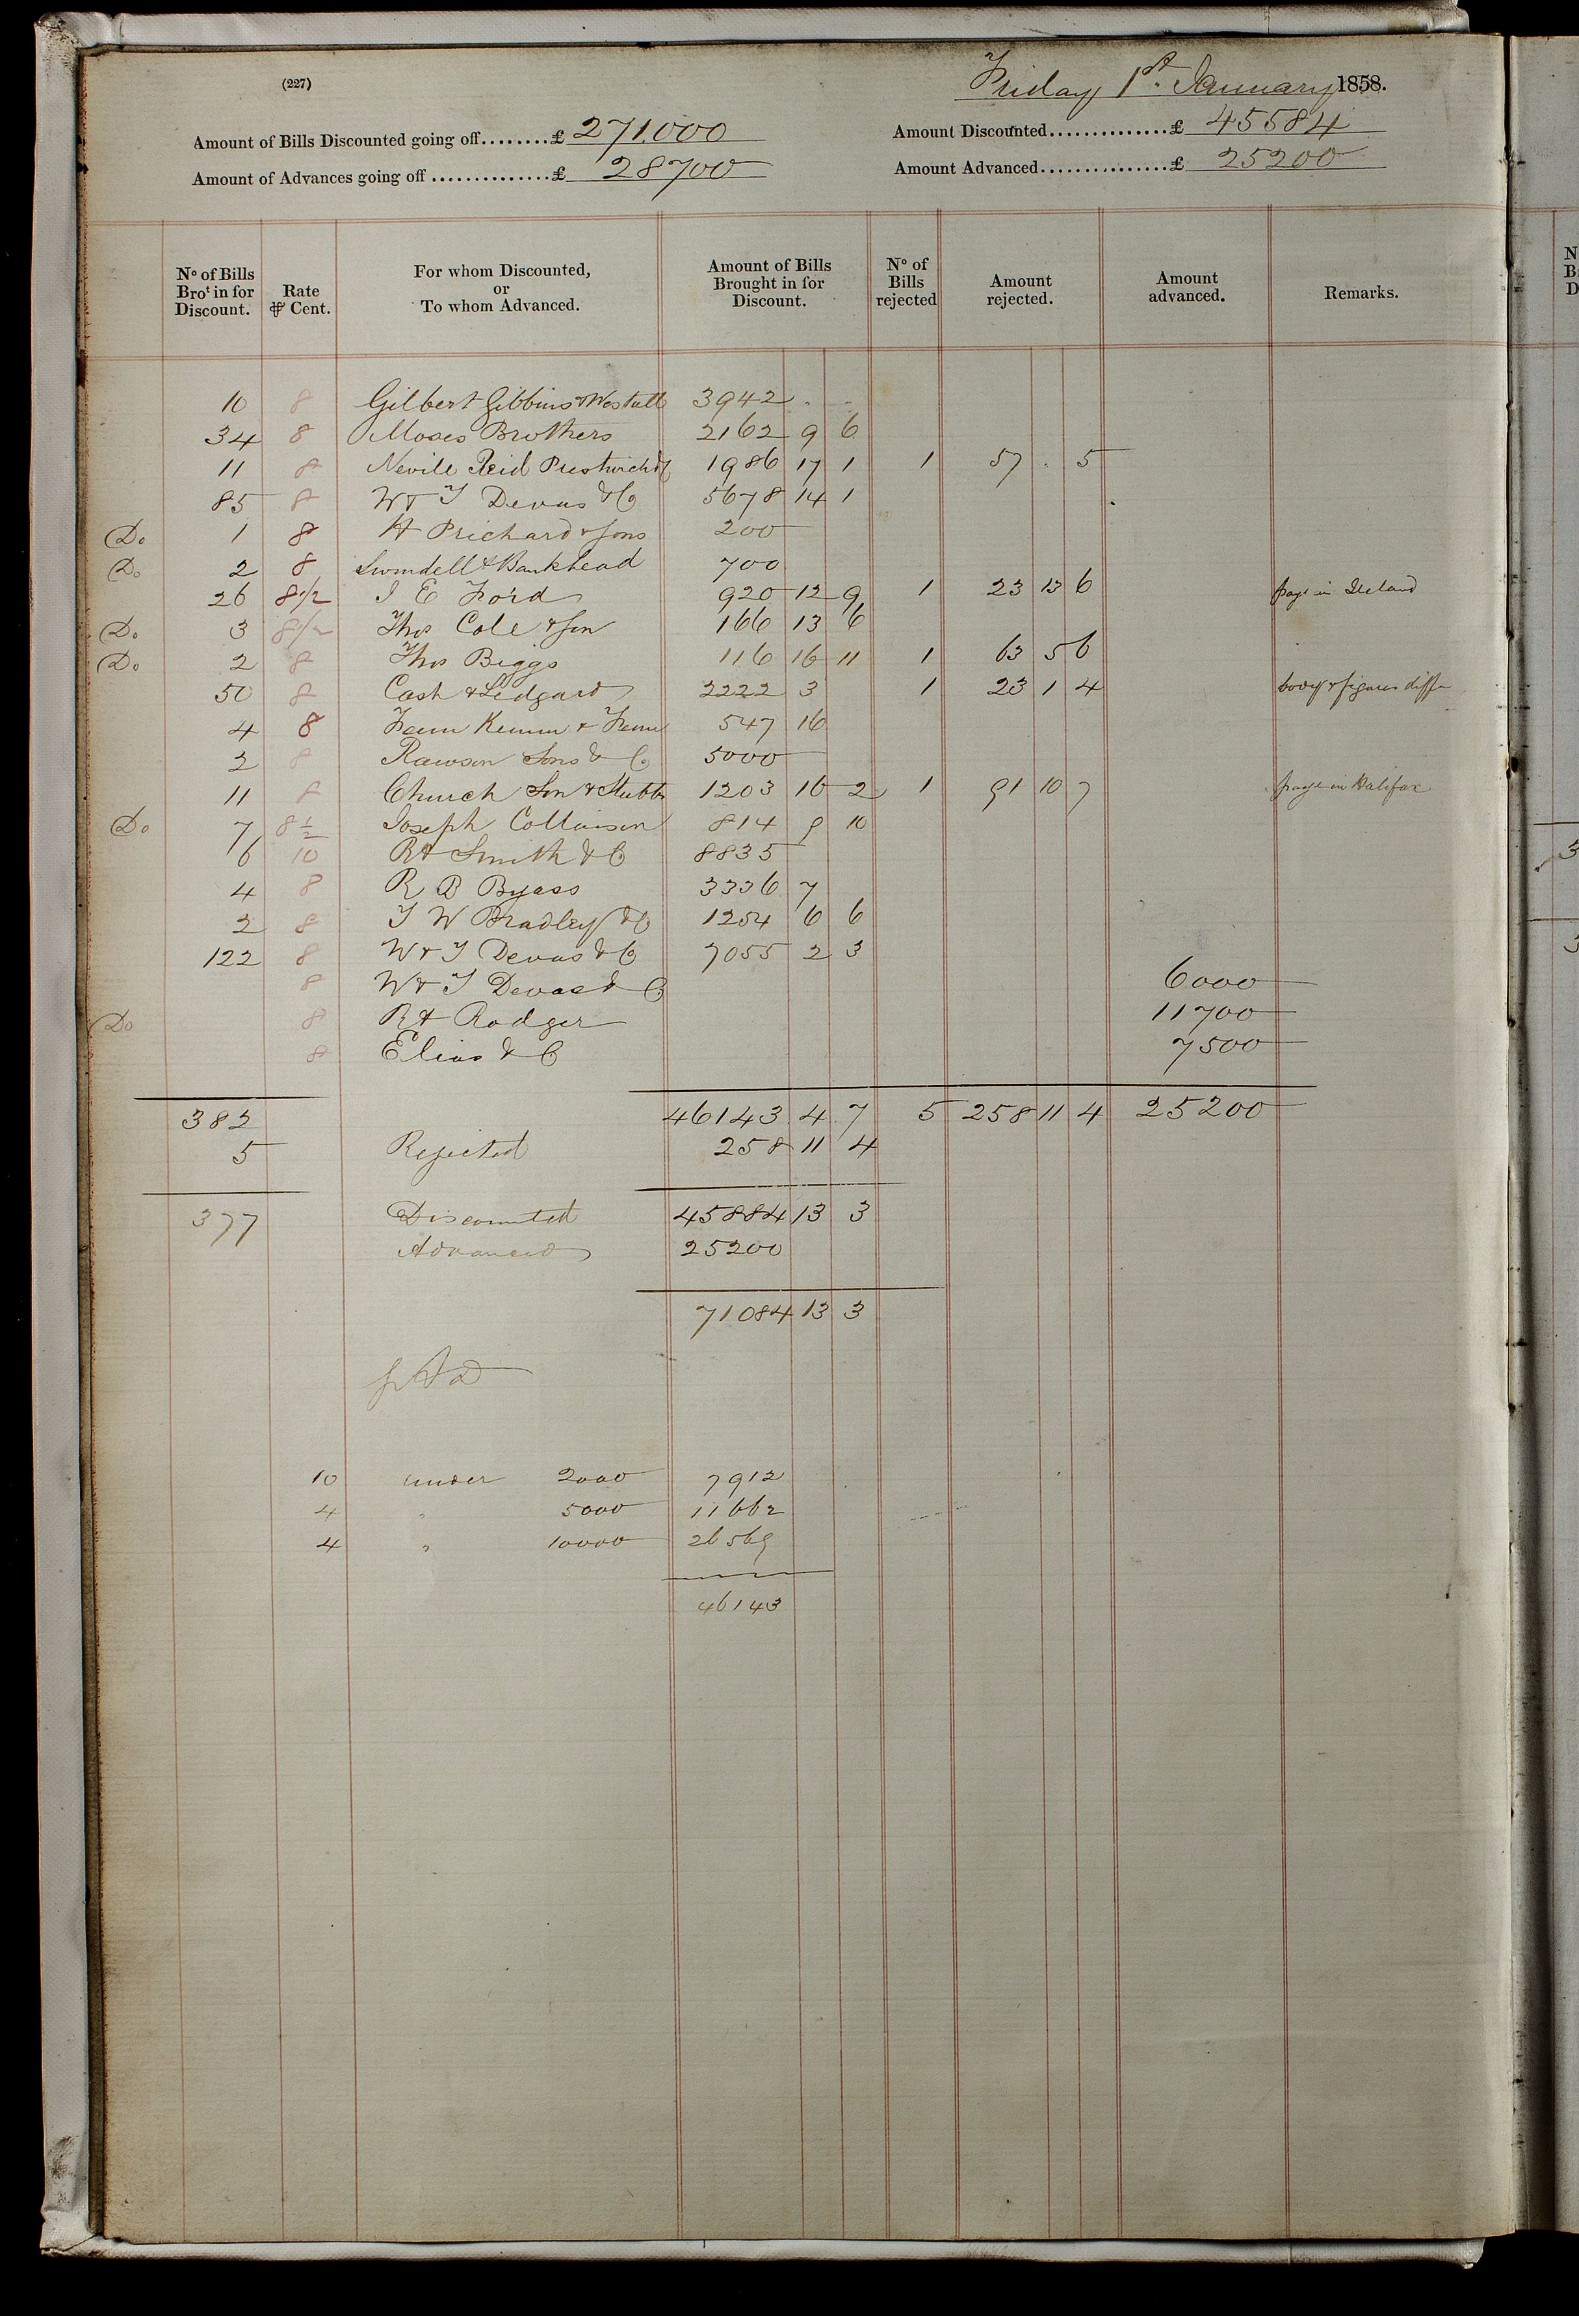 (227) Friday 1st. January 1858.
Amount of Bills Discounted going off........£ 271,000 Amount Discounted..............£ 45584
Amount of Advances going off..............£ 28700 Amount Advanced...............£ 25200
No of Bills Brot in for Discount. Rate ⅌ Cent. For whom Discounted, or To whom Advanced. Amount of Bills Brought in for Discount. No of Bills rejected Amount rejected. Amount advanced. Remarks.
10 8 Gilbert Gibbins & Westall 3942 . .
34 8 Moses Brothers 2162 9 6
11 8 Nevile Reid Prestwich & C 1986 17 1 1 57 . 5
85 8 W & J Devas & Co 5678 14 1
Do 1 8 H Prichard & Sons 200
Do 2 8 Swindell & Bankhead 700
26 8 1/2 J E Ford 920 12 9 1 23 13 6 page in Ireland
Do 3 8 1/2 Thos Cole & Son 166 13 6
Do 2 8 Thos Biggs 116 16 11 1 63 5 6
50 8 Cash & Ledgard 2222 3 1 23 1 4 body & figures differ
4 8 547 16
2 8 Rawson Sons & Co 5000
11 8 Church Son & Stubbs 1203 16 2 1 91 10 7 page in Halifax
Do 7 8 1/2 Joseph Collinson 814 9 10
6 10 Rt Smith & Co 8835
4 8 R B Byass 3336 7
2 8 J W Bradley & Co 1254 6 6
122 8 W & J Devas & Co 7055 2 3
8 W & J Devas & Co 6000
Do 8 Rt Rodger 11700
8 Elias & Co 7500
382 46143 4 7 5 258 11 4 25200
5 Rejected 258 11 4
377 Discounted 45884 13 3
Advanced 25200
71084 13 3
10 under 2000 7912
4 " 5000 11662
4 " 10000 26569
46143